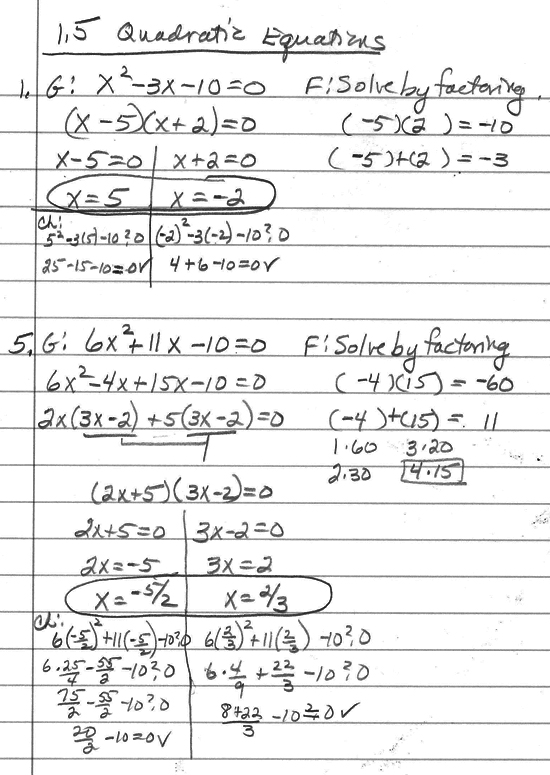 1.5 Quadratic Equations
1. G: x²-3x-10=0 F: Solve by factoring.
(x-5)(x+2)=0 (-5)(2)=-10
x-5=0 | x+2=0 (-5)+(2)=-3
x=5 | x=-2
Ch:
5²-3(5)-10?0 | (-2)²-3(-2)-10?0
25-15-10=0✓ | 4+6-10=0✓
5. G: 6x²+11x-10=0 F: Solve by factoring
6x²-4x+15x-10=0 (-4)(15)=-60
2x(3x-2)+5(3x-2)=0 (-4)+(15)=11
1·60 3·20
2·30 4·15
(2x+5)(3x-2)=0
2x+5=0 | 3x-2=0
2x=-5 | 3x=2
x=-5/2 | x=2/3
Ch:
6(-5/2)²+11(-5/2)-10?0 | 6(2/3)²+11(2/3)-10?0
6·25/4-55/2-10?0 | 6·4/9+22/3-10?0
75/2-55/2-10?0 | (8+22)/3-10?0✓
20/2-10=0✓